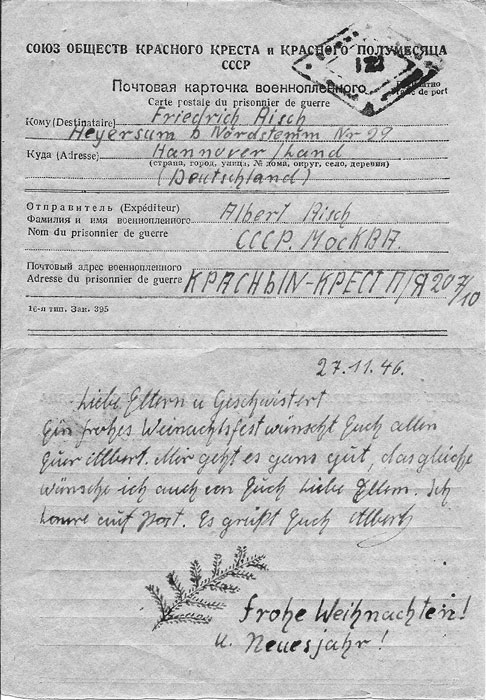 СОЮЗ ОБЩЕСТВ КРАСНОГО КРЕСТА и КРАСНОГО ПОЛУМЕСЯЦА
СССР
Почтовая карточка военнопленного
Carte postale du prisonnier de guerre
de port
Кому (Destinataire) Friedrich Aisch
Heyersum b Nordstemm Nr 29
Куда (Adresse) Hannover /Land
(страна, город, улица, № дома, округ, село, деревня)
(Deutschland)
Отправитель (Expéditeur)
Фамилия и имя военнопленного Albert Aisch
Nom du prisonnier de guerre СССР. МОСКВА.
Почтовый адрес военнопленного
Adresse du prisonnier de guerre КРАСНЫЙ-КРЕСТ П/Я 207/10
16-я тип. Зак. 395
27.11.46.
Liebe Eltern u Geschwistert
Ein frohes Weinachtsfest wünscht Euch allen
Euer Albert. Mir geht es gans gut, das gleiche
wünsche ich auch von Euch Liebe Eltern. Ich
auf Post. Es grüßt Euch Albert
frohe Weihnachten!
u. Neuesjahr!